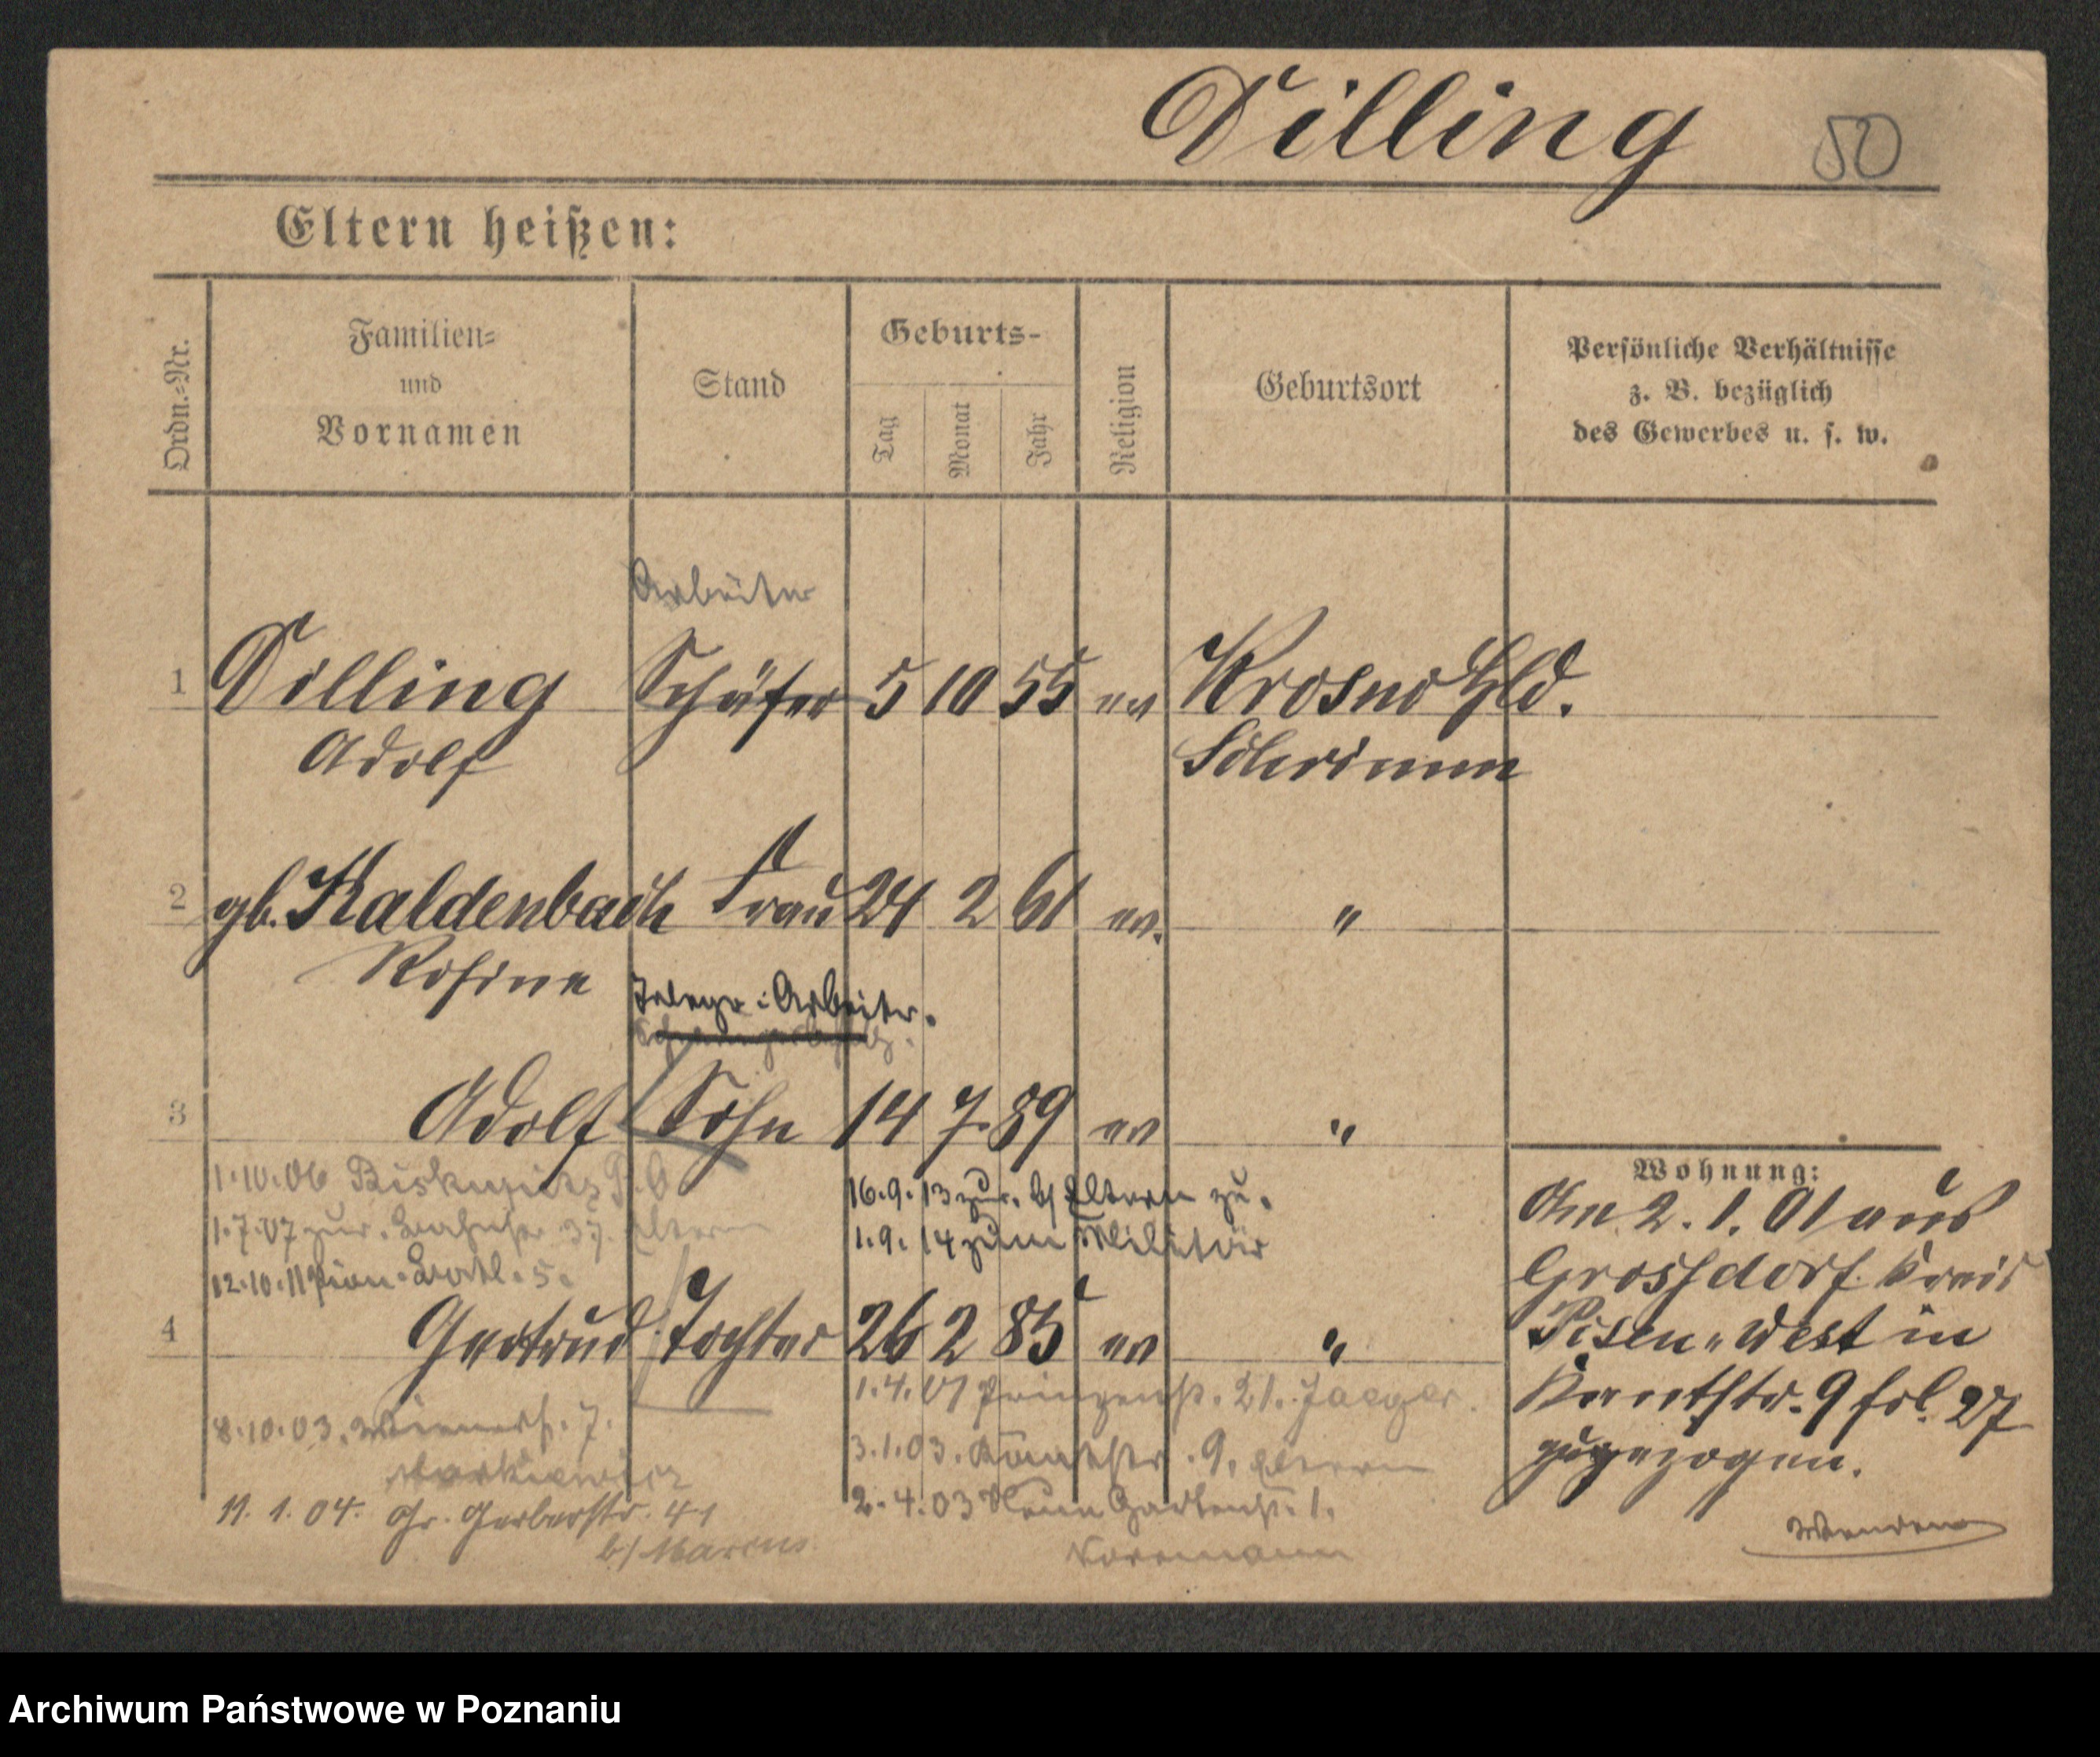 Dilling 50
Eltern heißen:
Ordn.=Nr.
Familien=
und
Vornamen
Stand
Geburts-
Tag
Monat
Jahr
Religion
Geburtsort
Persönliche Verhältnisse
z. B. bezüglich
des Gewerbes u. s. w.
Arbeiter
1 Dilling Schäfer 5 10 55 ev Krosno Hld.
Adolf Schrimm
2 gb. Kaldenbach Frau 24 2 61 ev. "
Rosine
Telegr: Arbeiter.
3 Adolf Sohn 14 7. 89 ev "
1.10.06 Biskupitz
1.7.07 zur. 37. Eltern
12.10.11 Pion. Batl. 5.
16.9.13 zur. b/ Eltern zu.
1.9.14 zum Militär
4 Gertrud Tochter 26 2 85 ev "
8.10.03. Wienerst. 7.
Markiewicz
11. 1. 04. Gr. Gerberstr. 41
b/ Marcus
1.4.01 Prinzenst. 21. Jaeger.
3.1.03. 9. Eltern
2.4.03 Neue Gartenst. 1.
Wohnung:
Am 2. 1. 01 aus
Grossdorf. Kreis
Posen-West in
Kantstr. 9 fol. 27
zugezogen.
Archiwum Państwowe w Poznaniu